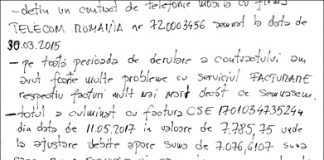 - dețin un contract de telefonie mobilă cu firma
TELECOM ROMANIA nr 720003456 semnat la data de
30.03.2015
- pe toată perioada de derulare a contractului am
avut foarte multe probleme cu serviciul FACTURARE
respectiv facturi mult mai mari decât ce semnasem.
- totul a culminat cu factura CSE 1701034735244
din data de 11.05.2017 în valoare de 7.785,75 unde
la ajustare debite apare suma de 7.076,6107 suma